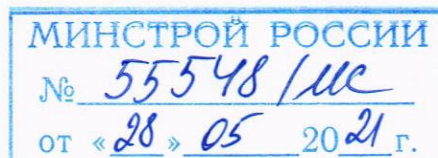 МИНСТРОЙ РОССИИ
№ 55548/ИС
от «28» 05 2021 г.